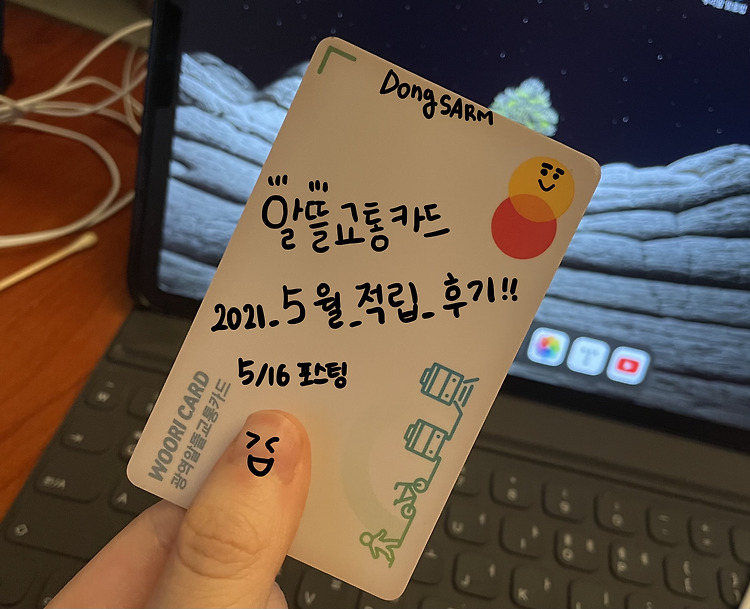 DongSARM
알뜰교통카드
2021_5월_적립_후기!!
5/16 포스팅
WOORI CARD
광역알뜰교통카드